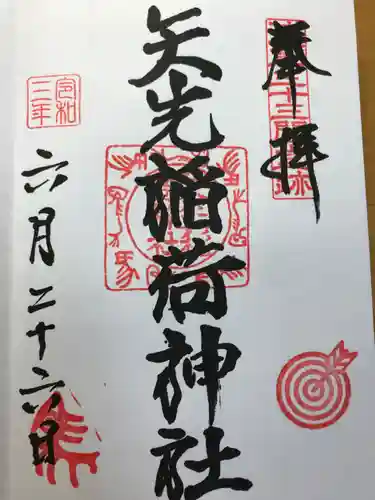 奉拝
矢先稲荷神社
令和
三年
六月二十六日